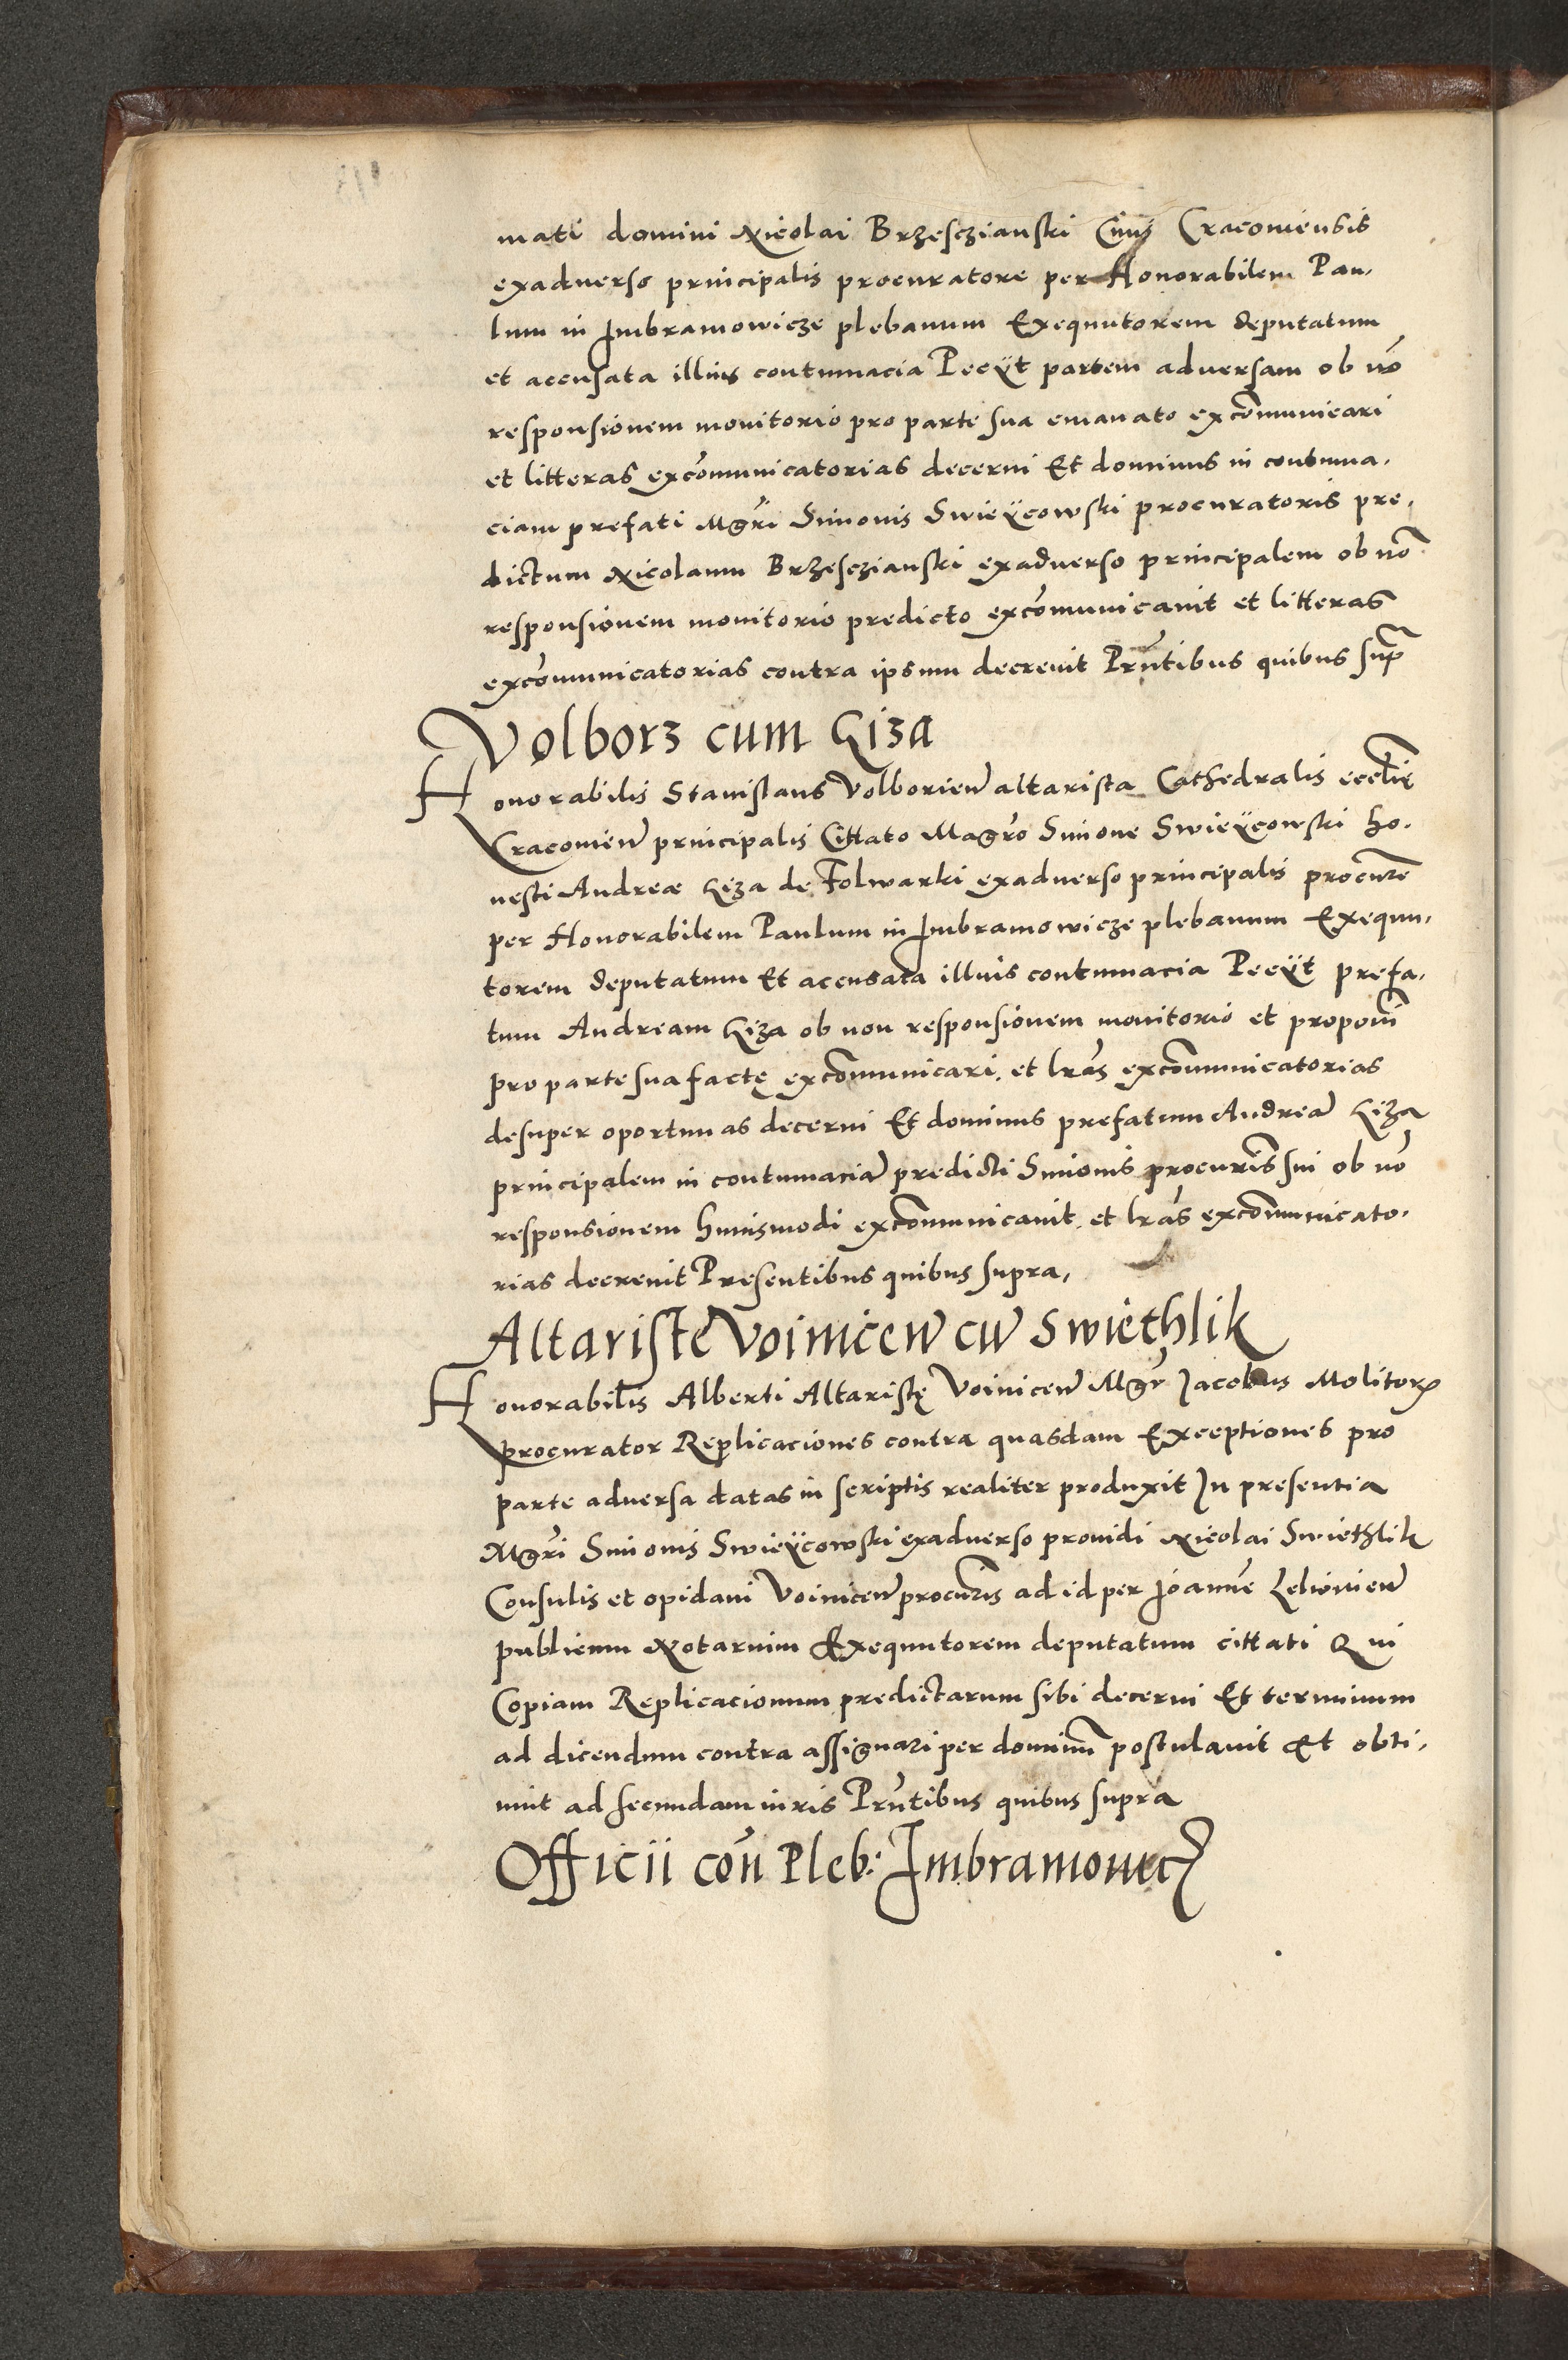 mati domini Nicolai Brzesczianski Civis Cracoviensis
exadverso principalis procuratore per Honorabilem Pau,
lum in Imbramowicze plebanum Exequutorem deputatum
et accusata illius contumacia Peciit partem adversam ob nō
responsionem monitorio pro parte sua emanato excōmunicari
et litteras excōmunicatorias decerni Et dominus in contuma,
ciam prefati Mgri Simonis Swieÿcowski procuratoris pre,
dictum Nicolaum Brzesczianski exadverso principalem ob nō
responsionem monitorio predicto excōmunicavit et litteras
excōmunicatorias contra ipsum decrevit Prntibus quibus supra
Volborz cum Liza
Honorabilis Stanislaus Volborien altarista Cathedralis ecclię
Cracovien principalis Cittato Magrō Simone Swieÿcowski ho,
nesti Andreae Liza de Folwarki exadverso principalis procure
per Honorabilem Paulum in Imbramowicze plebanum Exequu,
torem deputatum Et accusata illius contumacia Peciit prefa,
tum Andream Liza ob non responsionem monitorio et proponi
pro parte sua factę excōmunicari, et lras excōmunicatorias
desuper oportunas decerni Et dominus prefatum Andreā Liza
principalem in contumaciā predicti Simonis procuris sui ob nō
responsionem huiusmodi excōmunicavit, et lras excōmunicato,
rias decrevit Presentibus quibus supra,
Altariste Voinicen cū Swiethlik
Honorabilis Alberti Altaristę Voinicen Mgr Jacobus Molitoris
procurator Replicaciones contra quasdam Exceptiones pro
parte adversa datas in scriptis realiter produxit In presentia
Mgri Simonis Swieÿcowski exadverso providi Nicolai Swiethlik
Consulis et opidani Voinicen procuris ad id per Joannē Lelovien
publicum Notarium Exequutorem deputatum cittati Qui
Copiam Replicacionum predictarum sibi decerni Et terminum
ad dicendum contra assignari per dominū postulavit Et obti,
nuit ad secundam iuris Prntibus quibus supra
Officii con Pleb: Imbramovicz